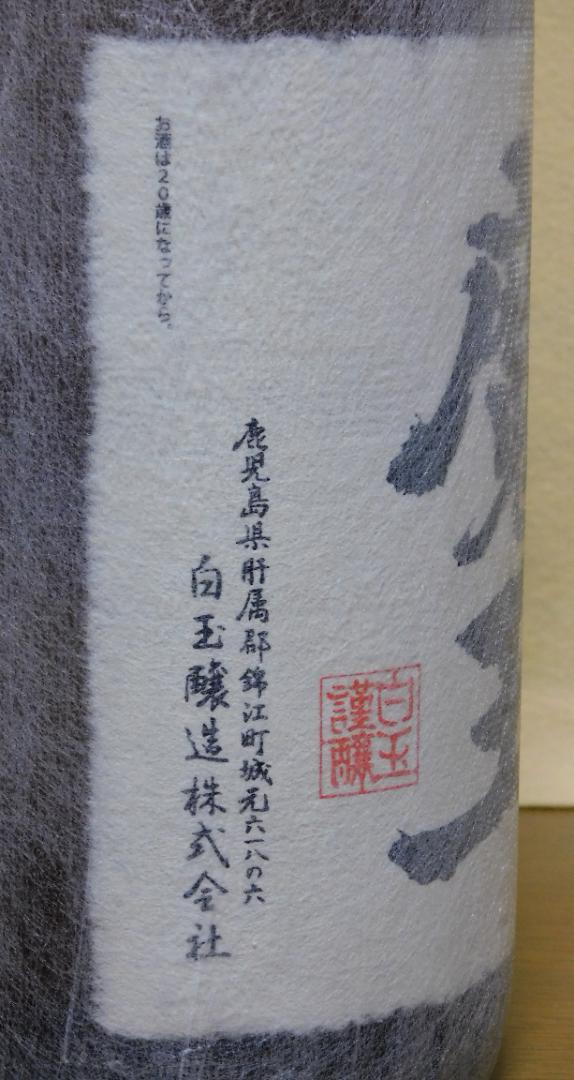 白玉
謹醸
鹿児島県肝属郡錦江町城元六一八の六
白玉醸造株式会社
お酒は20歳になってから。